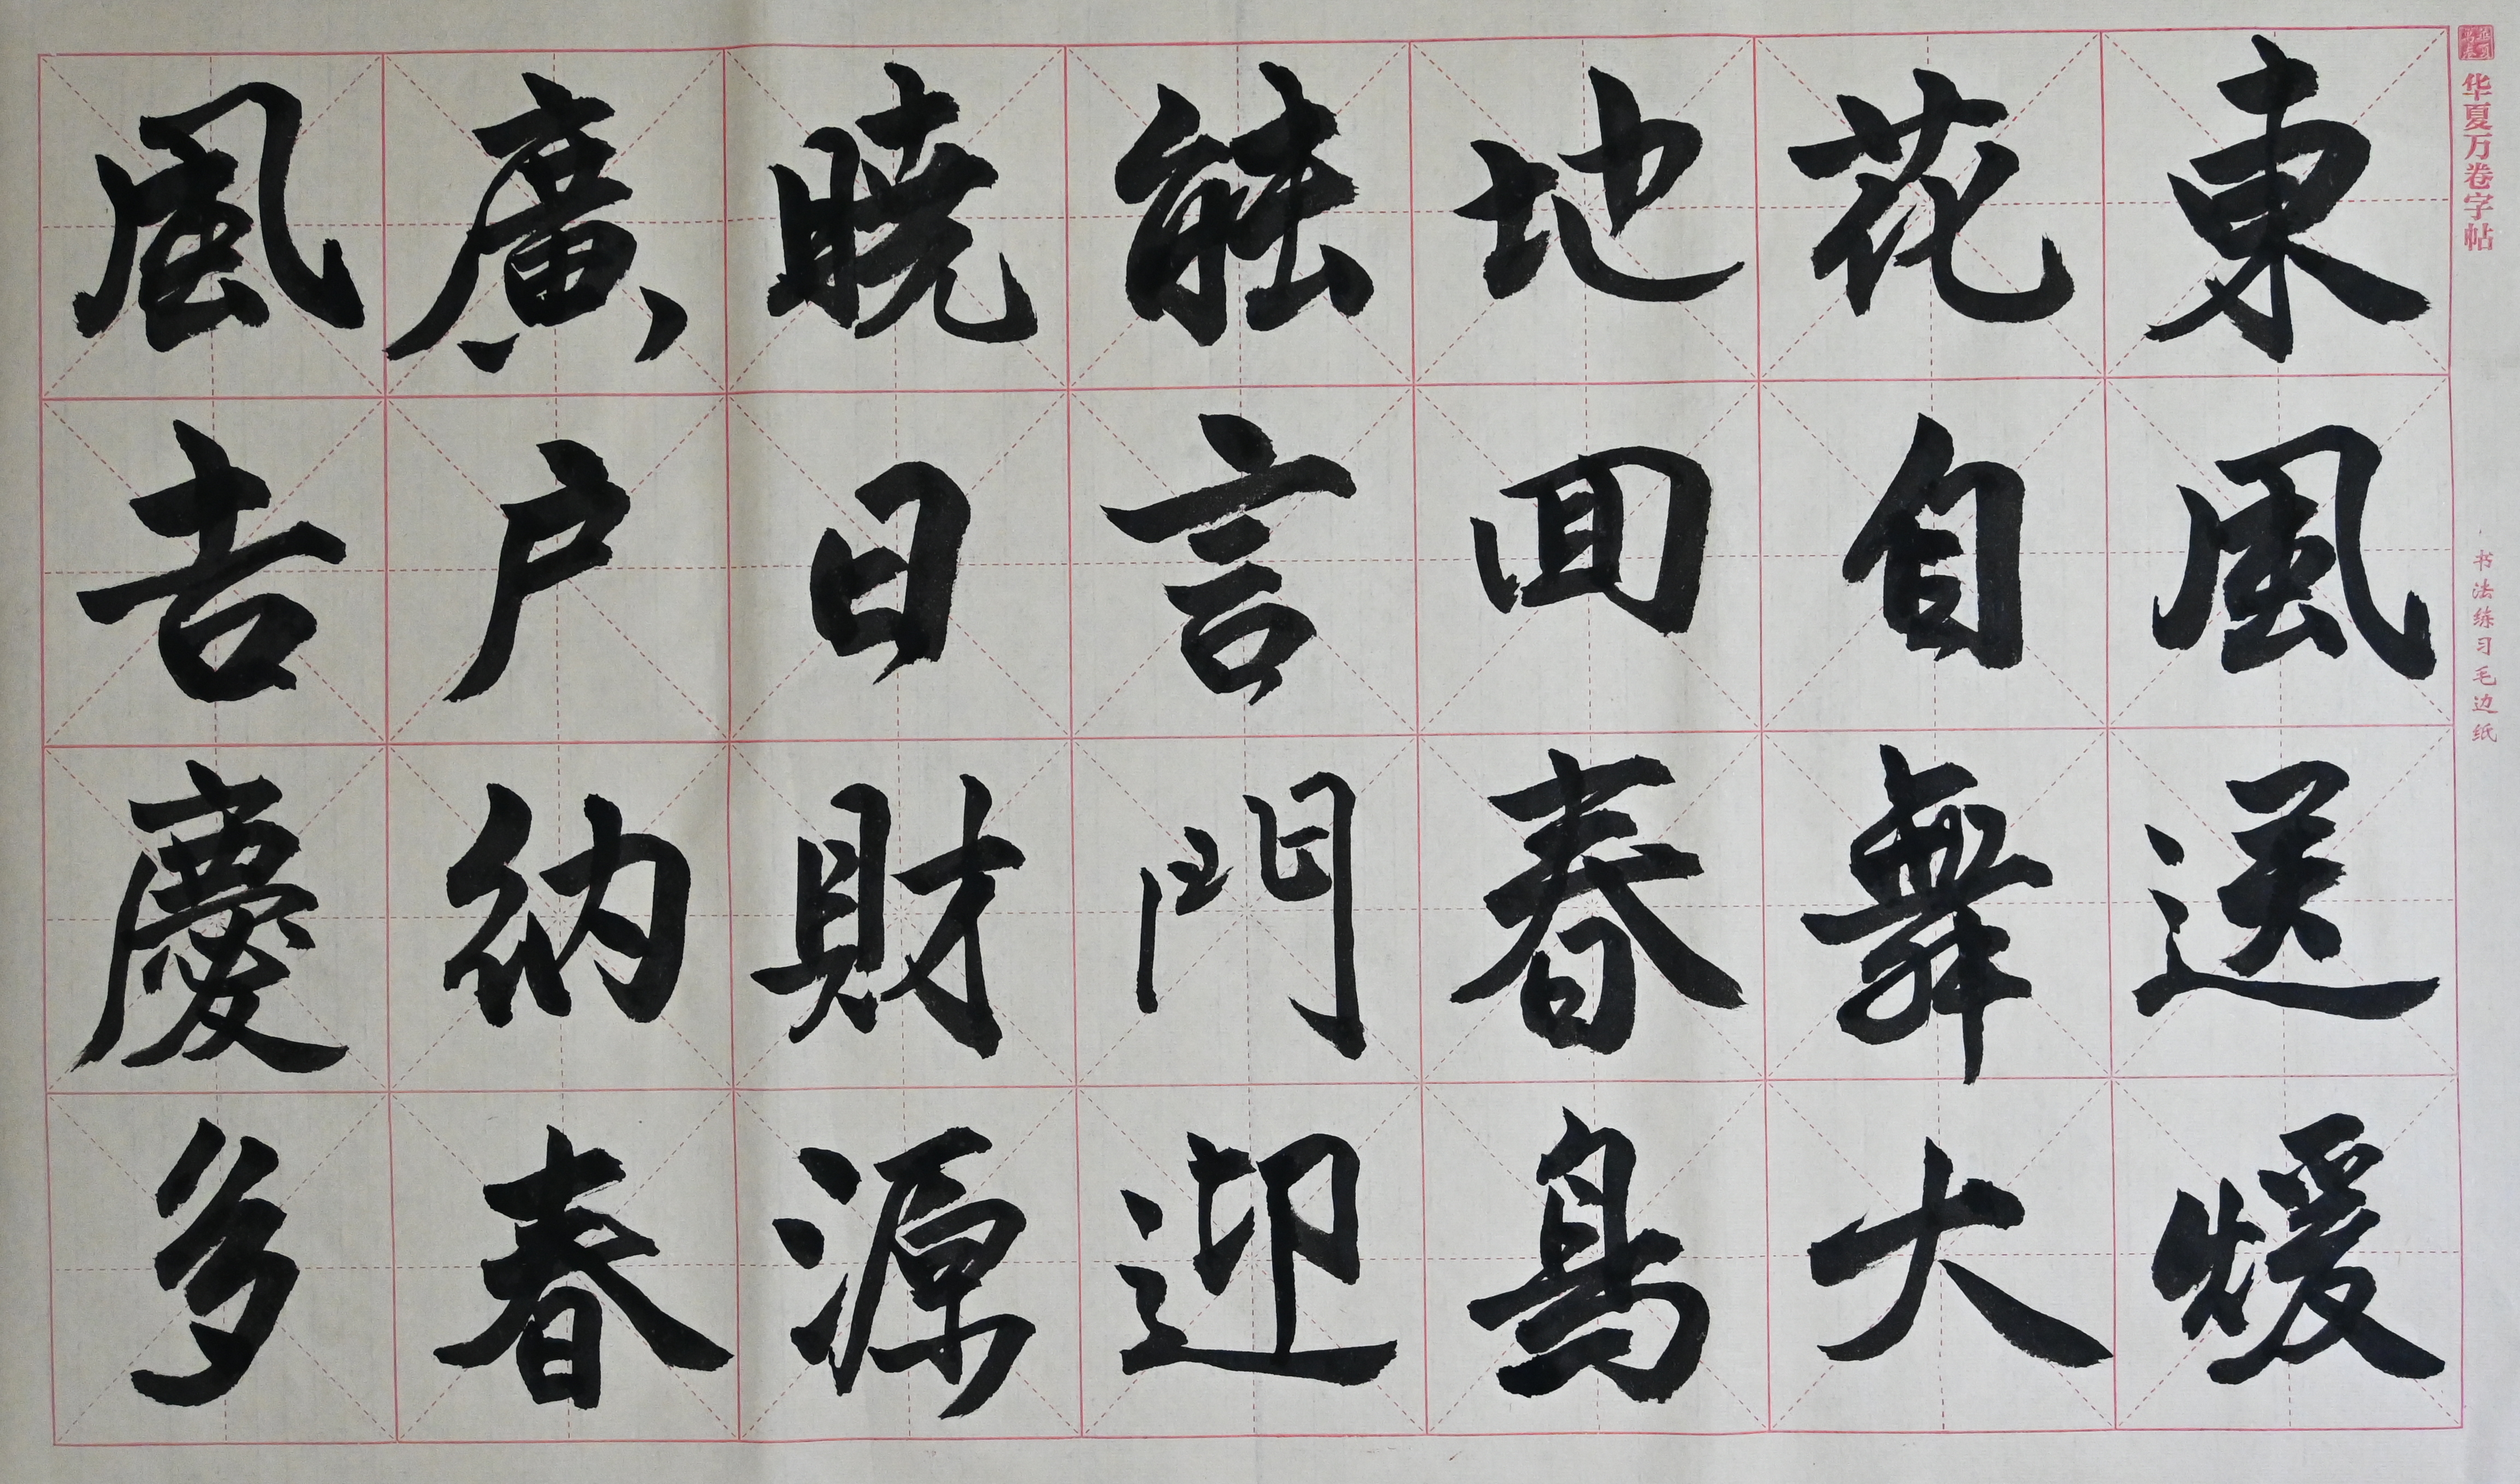 华夏万卷字帖
书法练习毛边纸
東風送煖
花自舞大
地回春鳥
能言門迎
曉日財源
廣戶納春
風吉慶多